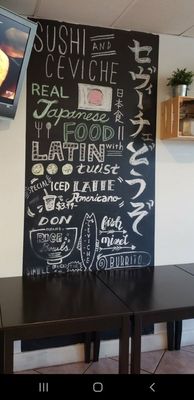 SUSHI AND
CEVICHE
REAL
Japanese
日本食
FOOD
LATIN with
twist
SPECIAL
ICED LATTE
"Americano"
$3.99
DON
MEANS
RICE
Bowls
CEVICHE
fish
BURRITO
セヴィチェ
どうぞ